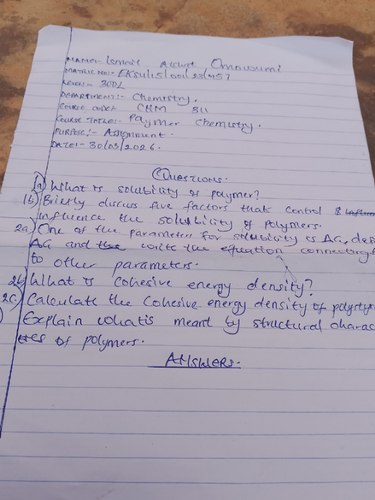 NAME:- Ismail Airat Omowumi
MATRIC NO:- EKSU/
LEVEL:- 300L
DEPARTMENT:- Chemistry.
COURSE CODE:- CHM 311
COURSE TITLE:- Polymer Chemistry.
PURPOSE:- Assignment.
DATE:- 30/05/2026.
Questions.
1a) What is solubility of polymer?
1b) Briefly discuss five factors that control &
influence the solubility of polymers.
2a) One of the parameter for solubility is ΔG,
ΔG and write the equation connecting
to other parameters.
2b) What is cohesive energy density?
2c) Calculate the cohesive energy density of
Explain what is meant by structural
of polymers.
ANSWERS.